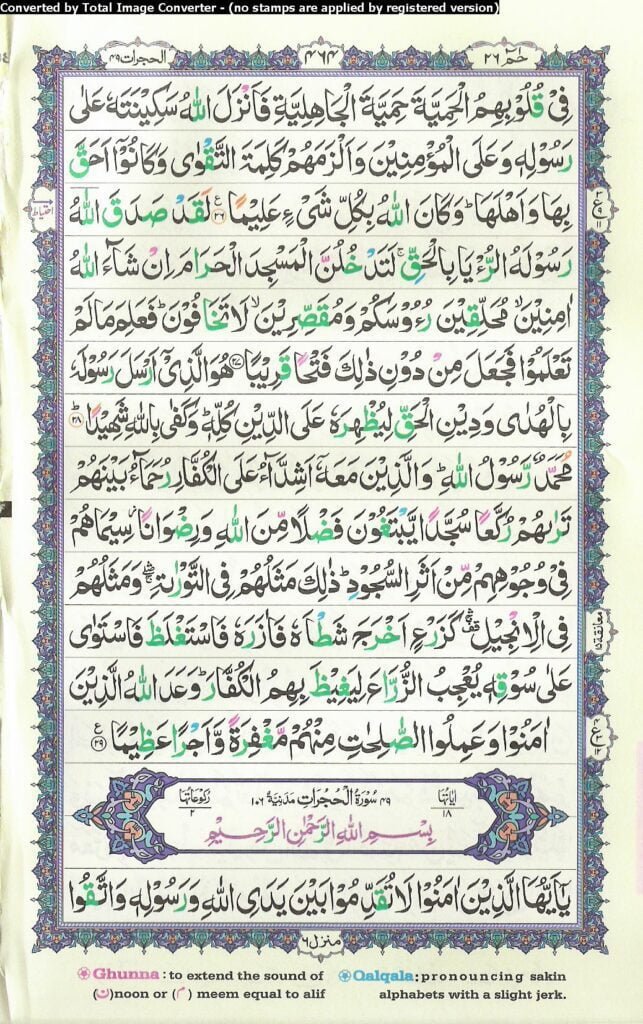 Converted by Total Image Converter - (no stamps are applied by registered version)
حٰمٓ ٢٦
٤٦٤
الحجرات ٤٩
فِىْ قُلُوْبِهِمُ الْحَمِيَّةَ حَمِيَّةَ الْجَاهِلِيَّةِ فَاَنْزَلَ اللّٰهُ سَكِيْنَتَهٗ عَلٰى
رَسُوْلِهٖ وَعَلَى الْمُؤْمِنِيْنَ وَاَلْزَمَهُمْ كَلِمَةَ التَّقْوٰى وَكَانُوْٓا اَحَقَّ
بِهَا وَاَهْلَهَا ؕ وَكَانَ اللّٰهُ بِكُلِّ شَىْءٍ عَلِيْمًا ۟ع ٢٦ لَقَدْ صَدَقَ اللّٰهُ
رَسُوْلَهُ الرُّءْيَا بِالْحَقِّ ۚ لَتَدْخُلُنَّ الْمَسْجِدَ الْحَرَامَ اِنْ شَآءَ اللّٰهُ
اٰمِنِيْنَ ۙ مُحَلِّقِيْنَ رُءُوْسَكُمْ وَمُقَصِّرِيْنَ ۙ لَا تَخَافُوْنَ ؕ فَعَلِمَ مَا لَمْ
تَعْلَمُوْا فَجَعَلَ مِنْ دُوْنِ ذٰلِكَ فَتْحًا قَرِيْبًا ٢٧ هُوَ الَّذِىْٓ اَرْسَلَ رَسُوْلَهٗ
بِالْهُدٰى وَدِيْنِ الْحَقِّ لِيُظْهِرَهٗ عَلَى الدِّيْنِ كُلِّهٖ ؕ وَكَفٰى بِاللّٰهِ شَهِيْدًا ؕ ٢٨
مُحَمَّدٌ رَّسُوْلُ اللّٰهِ ؕ وَالَّذِيْنَ مَعَهٗٓ اَشِدَّآءُ عَلَى الْكُفَّارِ رُحَمَآءُ بَيْنَهُمْ
تَرٰىهُمْ رُكَّعًا سُجَّدًا يَّبْتَغُوْنَ فَضْلًا مِّنَ اللّٰهِ وَرِضْوَانًا ؗ سِيْمَاهُمْ
فِىْ وُجُوْهِهِمْ مِّنْ اَثَرِ السُّجُوْدِ ؕ ذٰلِكَ مَثَلُهُمْ فِى التَّوْرٰىةِ ۛۖۚ وَمَثَلُهُمْ
فِى الْاِنْجِيْلِ ۛ۫ۚ كَزَرْعٍ اَخْرَجَ شَطْـَٔهٗ فَاٰزَرَهٗ فَاسْتَغْلَظَ فَاسْتَوٰى
عَلٰى سُوْقِهٖ يُعْجِبُ الزُّرَّاعَ لِيَغِيْظَ بِهِمُ الْكُفَّارَ ؕ وَعَدَ اللّٰهُ الَّذِيْنَ
اٰمَنُوْا وَعَمِلُوا الصّٰلِحٰتِ مِنْهُمْ مَّغْفِرَةً وَّاَجْرًا عَظِيْمًا ع ٢٩
احتیاط
معانقة ١٥
اٰيَاتُهَا ١٨
٤٩ سُوْرَةُ الْحُجُرَاتِ مَدَنِيَّةٌ ١٠٦
رُكُوْعَاتُهَا ٢
بِسْمِ اللّٰهِ الرَّحْمٰنِ الرَّحِيْمِ
يٰٓاَيُّهَا الَّذِيْنَ اٰمَنُوْا لَا تُقَدِّمُوْا بَيْنَ يَدَىِ اللّٰهِ وَرَسُوْلِهٖ وَاتَّقُوا
منزل ٦
Ghunna : to extend the sound of (ن)noon or (م) meem equal to alif
Qalqala : pronouncing sakin alphabets with a slight jerk.